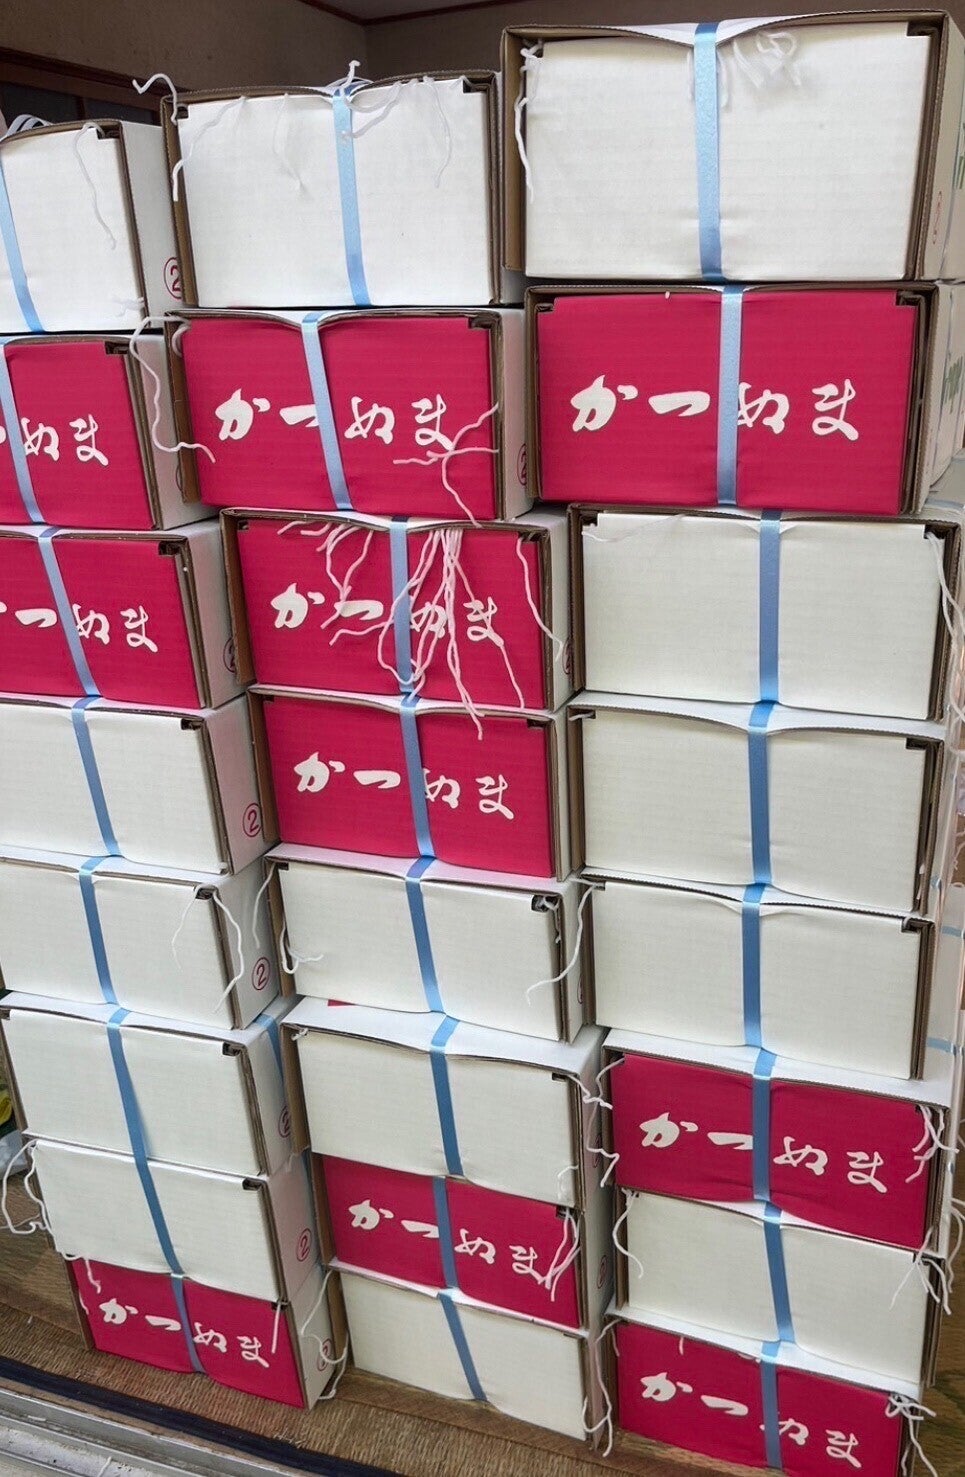 ②
かつぬま
かつぬま
ぬま
②
かつぬま
つぬま
かつぬま
②
②
かつぬま
かつぬま
②
かつぬま
かつぬま